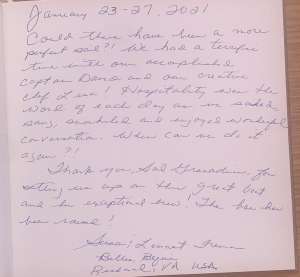 January 23-27, 2021
Could there have been a more
perfect sail?! We had a terrific
time with our accomplished
captain and our creative
chef Lisa! Hospitality was the
word of each day as we sailed,
sang, snorkeled and enjoyed wonderful
conversation. When can we do it
again?!
Thank you, Sail Grenadines, for
setting us up on this great boat
and the exceptional crew! The bar has
been raised!
VA USA